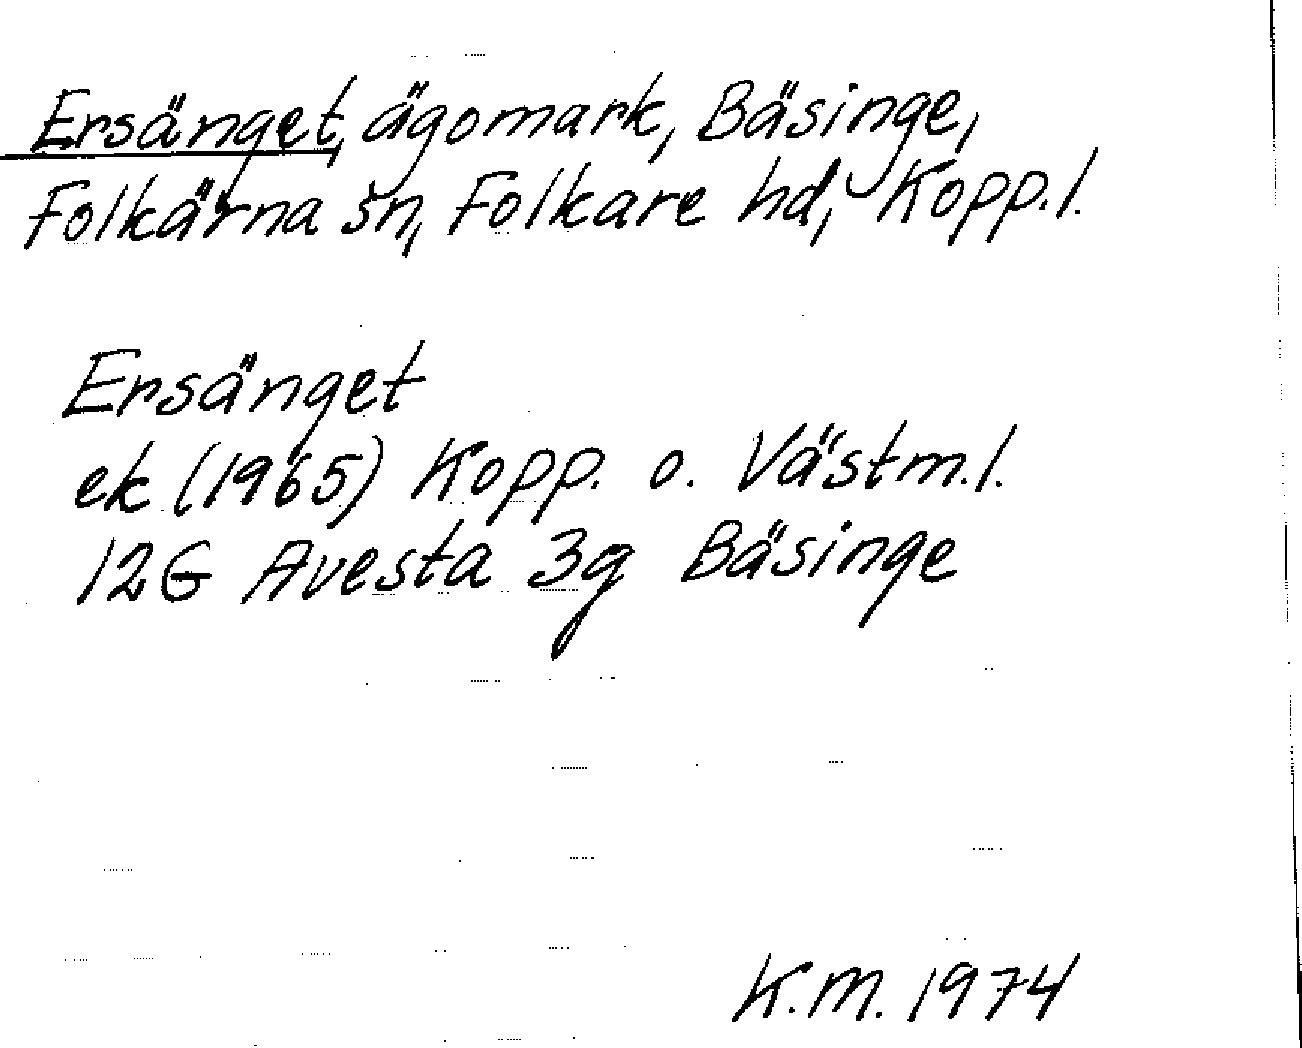 Ersänget, ägomark, Bäsinge,
Folkärna sn, Folkare hd, Kopp.l.
Ersänget
ek (1965) Kopp. o. Västm.l.
12G Avesta 3g Bäsinge
K.M. 1974